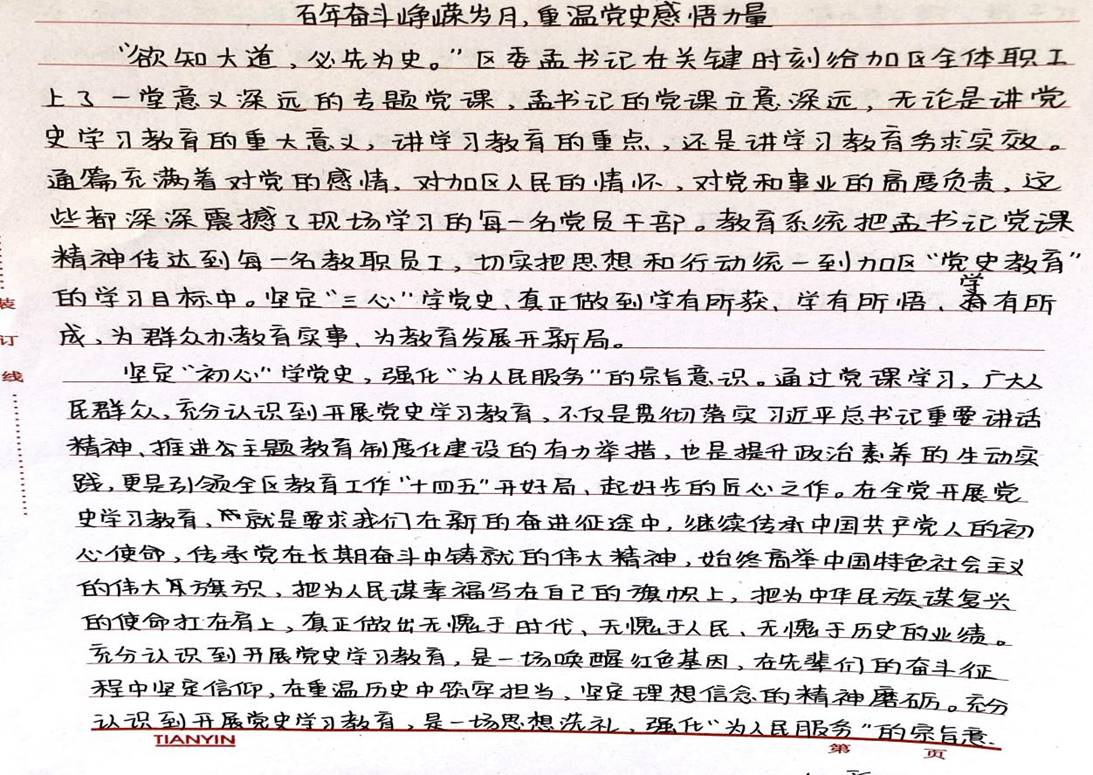 百年奋斗峥嵘岁月,重温党史感悟力量
"欲知大道,必先为史。"区委孟书记在关键时刻给加区全体职工
上了一堂意义深远的专题党课、孟书记的党课立意深远,无论是讲党
史学习教育的重大意义,讲学习教育的重点,还是讲学习教育务求实效。
通篇充满着对党的感情,对加区人民的情怀,对党和事业的高度负责,这
些都深深震撼了现场学习的每一名党员干部。教育系统把孟书记党课
精神传达到每一名教职员工,切实把思想和行动统一到加区"党史教育"
学
的学习目标中。坚定"三心"学党史、真正做到学有所获、学有所悟、有所
成,为群众办教育实事、为教育发展开新局。
坚定"初心"学党史,强化"为人民服务"的宗旨意识。通过党课学习,广大人
民群众,充分认识到开展党史学习教育,不仅是贯彻落实习近平总书记重要讲话
精神、推进主题教育制度化建设的有力举措,也是提升政治素养的生动实
践,更是引领全区教育工作"十四五"开好局、起好步的匠心之作。在全党开展党
史学习教育、就是要求我们在新的奋进征途中,继续传承中国共产党人的初
心使命,传承党在长期奋斗中铸就的伟大精神,始终高举中国特色社会主义
的伟大旗帜,把为人民谋幸福写在自己的旗帜上,把为中华民族谋复兴
的使命扛在肩上,真正做出无愧于时代、无愧于人民、无愧于历史的业绩。
充分认识到开展党史学习教育,是一场唤醒红色基因,在先辈们的奋斗征
程中坚定信仰,在重温历史中筑牢担当、坚定理想信念的精神磨砺。充分
认识到开展党史学习教育,是一场思想洗礼,强化"为人民服务"的宗旨意、
TIANYIN
第 页
装
订
线